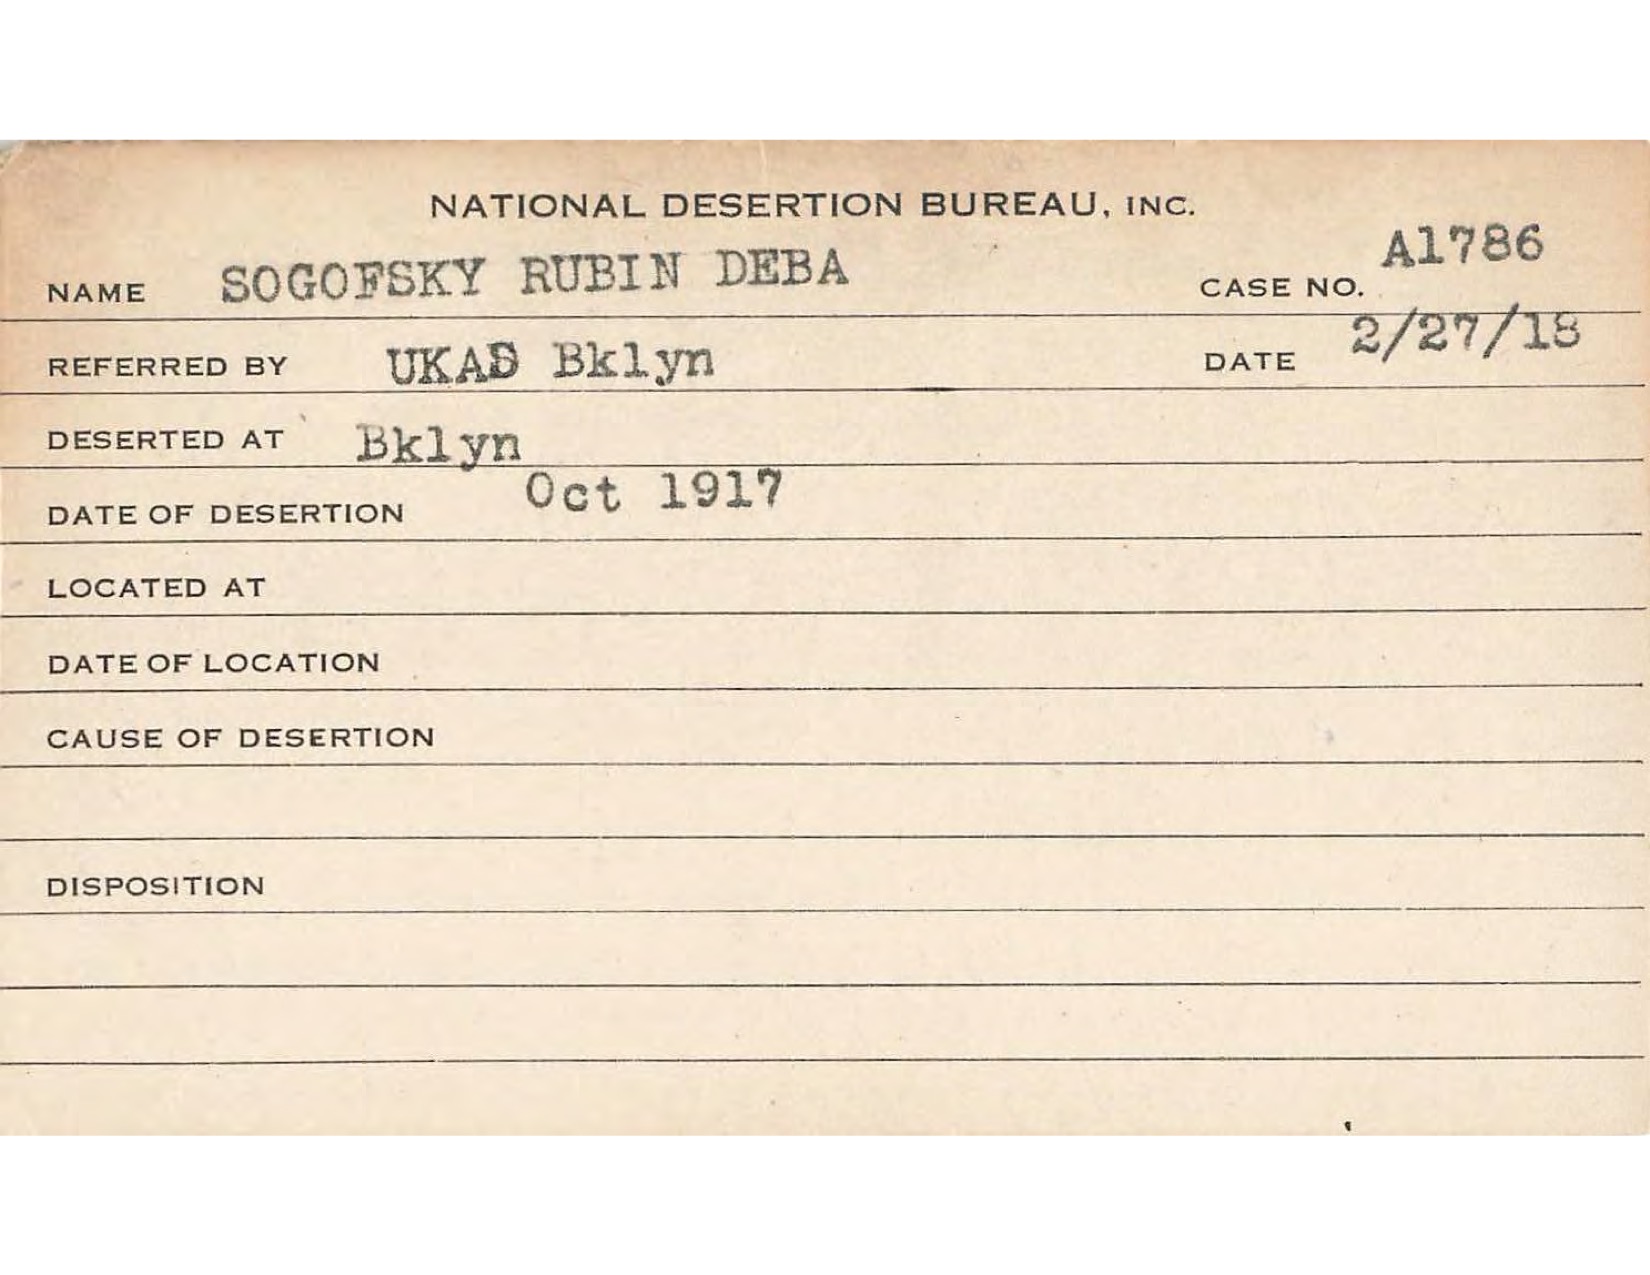 NATIONAL DESERTION BUREAU, INC.
NAME SOGOFSKY RUBIN DEBA CASE NO. A1786
REFERRED BY Bklyn DATE 2/27/18
DESERTED AT Bklyn
DATE OF DESERTION Oct 1917
LOCATED AT
DATE OF LOCATION
CAUSE OF DESERTION
DISPOSITION